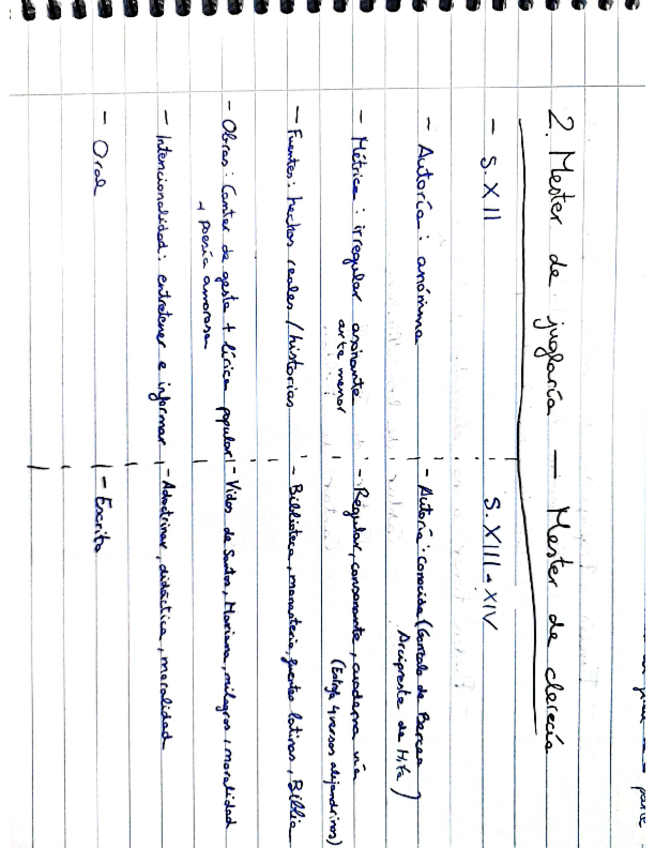 2. Mester de juglaría — Mester de clerecía
- S. XII S. XIII - XIV
- Autoría: anónima - Autoría: conocida (Gonzalo de Berceo
Arcipreste de Hita)
- Métrica: irregular asonante - Regular, consonante, cuaderna vía
arte menor (Estrofa 4 versos alejandrinos)
- Fuentes: hechos reales / historias - Biblioteca, monasterio, fuentes latinas, Biblia
- Obras: Cantar de gesta + lírica popular - Vidas de Santos, Mariana, milagros, moralidad
+ poesía amorosa
- Intencionalidad: entretener e informar - Adoctrinar, didáctica, moralidad
- Oral - Escrito